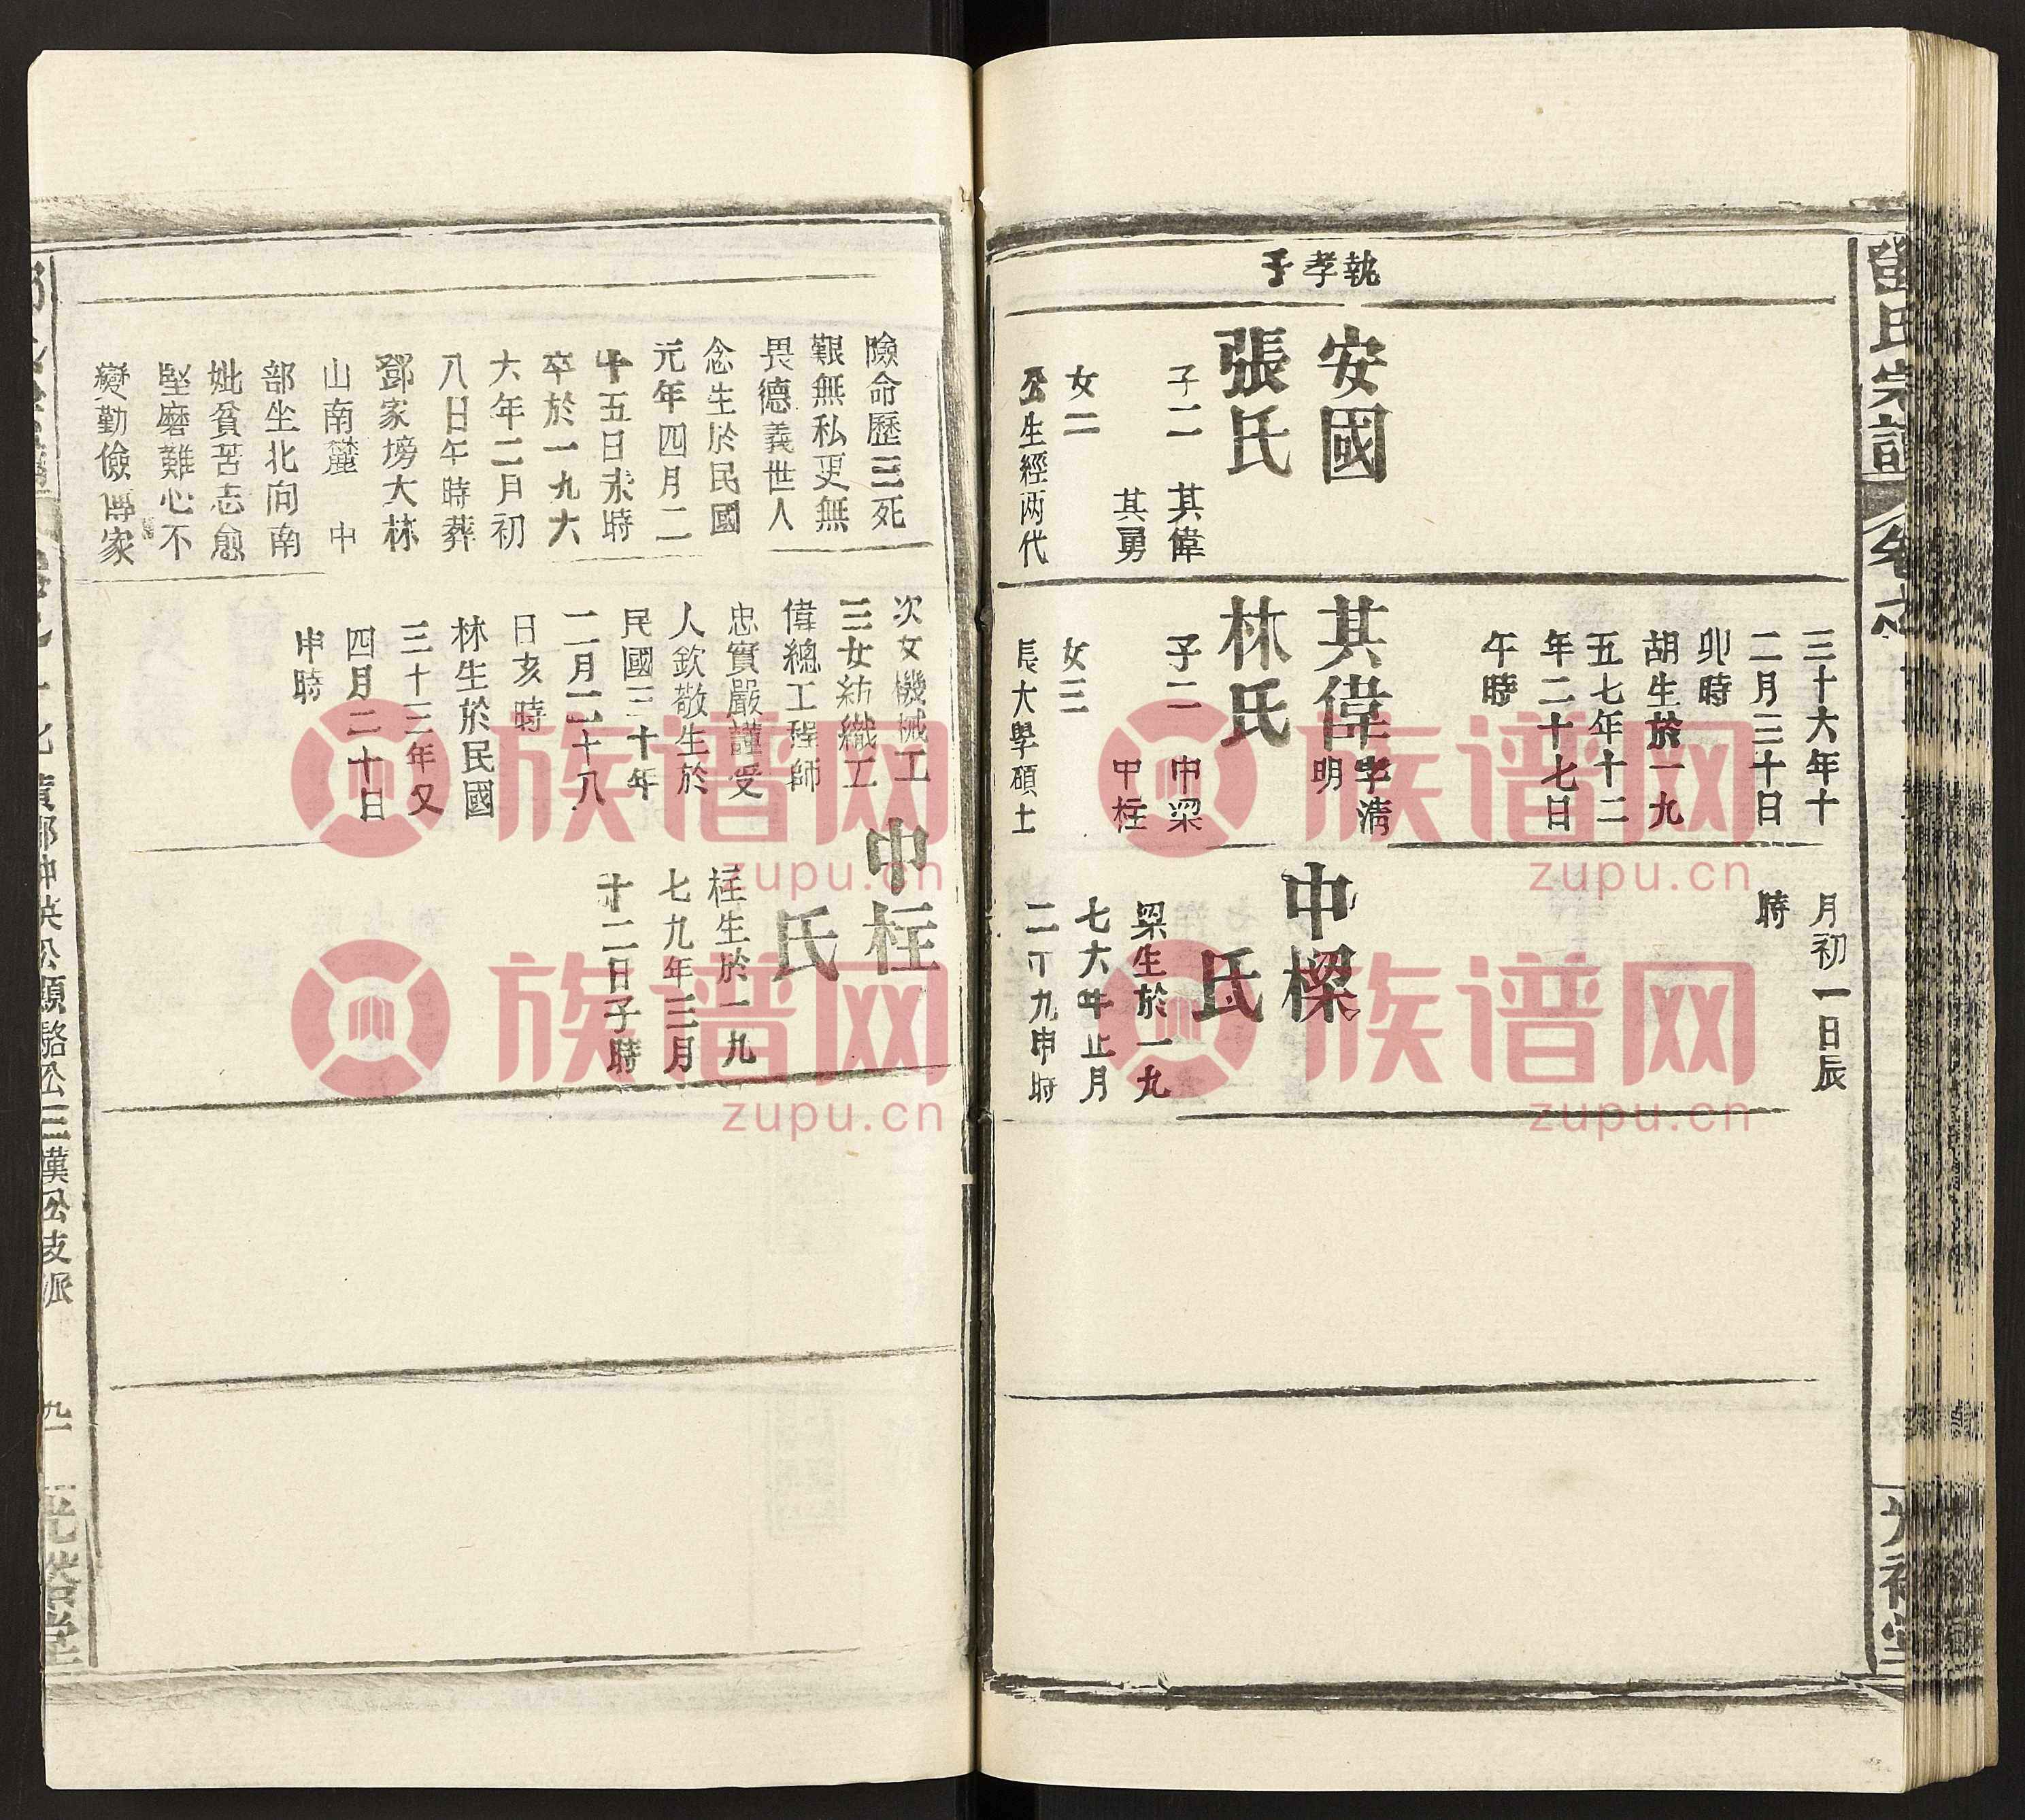 鄧氏宗譜
卷之
光裕堂
執孝子
安國
張氏
子二
其偉
其勇
女二
公生經两代
三十六年十
二月三十日
卯時
胡生於一九
五七年十二
年二十七日
午時
其偉
字清
明
林氏
子二
中梁
中柱
女三
長大學碩士
月初一日辰
時
中樑
氏
梁生於一九
七六年正月
二十九申時
險命歷三死
艱無私更無
畏德義世人
念生於民國
元年四月二
十五日未時
卒於一九六
大年二月初
八日午時葬
鄧家塝大林
山南麓 中
部坐北向南
妣貧苦志愈
堅磨難心不
變勤儉傳家
次女機械工
三女紡織工
偉總工程師
忠實嚴謹受
人欽敬生於
民國三十年
二月二十八
日亥時
林生於民國
三十三年又
四月二十日
申時
中柱
氏
柱生於一九
七九年三月
十二日子時
英公顯駱公三漢公支派
九一
光裕堂
族谱网
zupu.cn
族谱网
zupu.cn
族谱网
zupu.cn
族谱网
zupu.cn